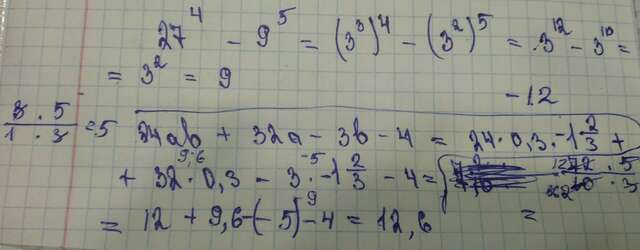 27⁴ - 9⁵ = (3³)⁴ - (3²)⁵ = 3¹² - 3¹⁰ =
= 3² = 9
-12
3 · 5 / 1 · 3 = 5
24ab + 32a - 3b - 4 = 24 · 0,3 · -1 2/3 +
9,6 -5
+ 32 · 0,3 - 3 · -1 2/3 - 4 =
9
= 12 + 9,6 - (-5) - 4 = 12,6 =